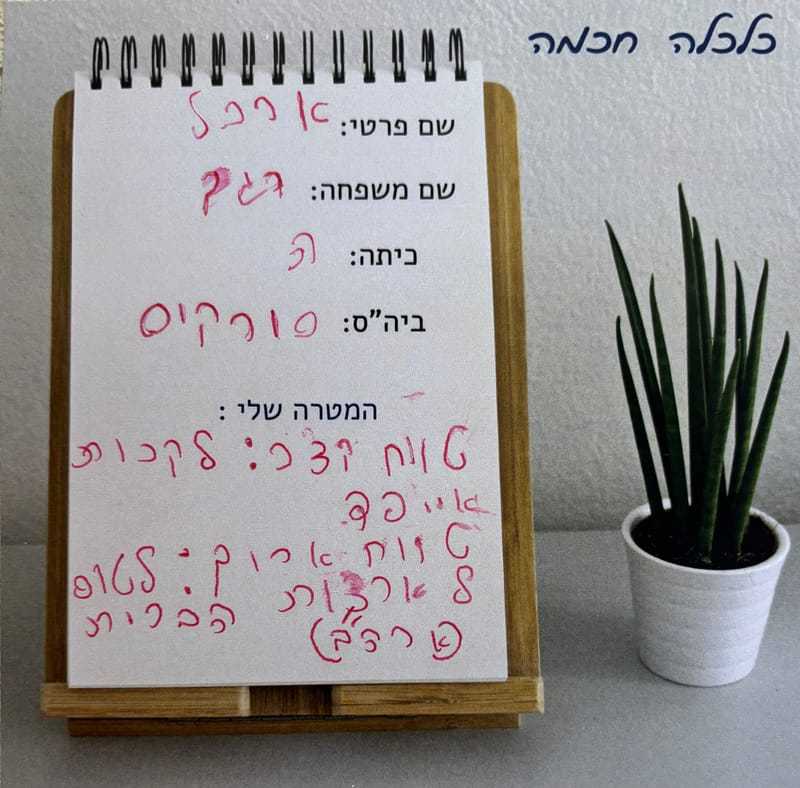 כלכלה חכמה
שם פרטי: ארבל
שם משפחה:
כיתה: ה
ביה"ס: פורקים
המטרה שלי :
טווח קצר: לקנות
אייפד
טווח ארוך: לטוס
לארצות הברית
(ארה"ב)